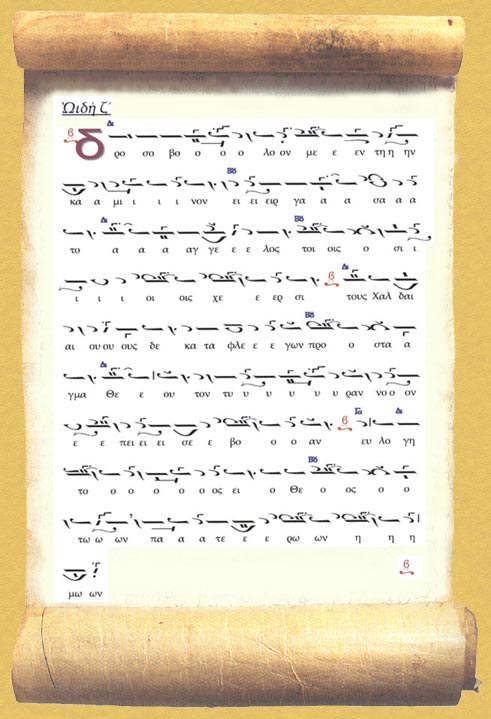 Ὠιδὴ ζ΄
δ ρο σο βο ο ο λο ον με ε εν τη η ην
κα α μι ι ι ι νον ει ει ειργ γα α α σα α α
το α α α αγ γε ε ε λος τοι οις ο σι ι
ι ι ι οι οις χε ε ερ σι τους Χαλ δαι
αι ου ου ους δε κα τα φλε ε ε γων προ ο στα α
γμα Θε ε ου τον τυ υ υ υ υ υ ραν νο ο ον
ε ε πει ει ει σε ε βο ο ο αν ευ λο γη
το ο ο ο ο ος ει ο Θε ο ος ο ο
τω ω ων πα α α τε ε ε ρω ων η η η
μω ων